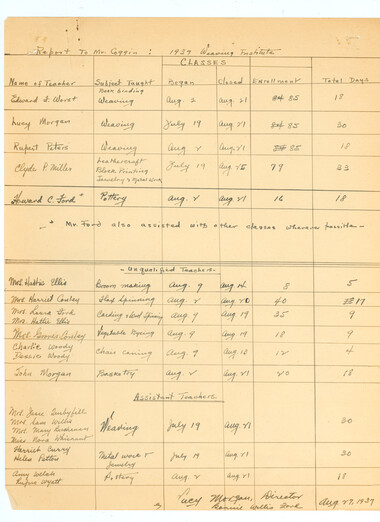 Report To Mr. Coggin : 1937 Weaving Institute
CLASSES
Name of Teacher Subject Taught Began Closed Enrollment Total Days
Book binding
Edward F. Worst Weaving Aug. 2 Aug. 21 85 18
Lucy Morgan Weaving July 19 Aug. 21 85 30
Rupert Peters Weaving Aug. 2 Aug. 21 85 18
Clyde P. Miller Leathercraft July 19 Aug. 25 77 33
Block Printing
Jewelry & Metal Work
Howard C. Ford * Pottery Aug. 2 Aug. 21 16 18
* Mr. Ford also assisted with other classes wherever possible —
- Unqualified Teachers -
Mrs. Hattie Ellis Broom making Aug. 9 Aug. 14 8 5
Mrs. Harriet Conley Flax Spinning Aug. 2 Aug. 20 40 17
Mrs. Laura Fork Carding & Wool Spinning Aug. 9 Aug. 19 35 9
Mrs. Hattie Ellis
Mrs. Conley Vegetable Dyeing Aug. 9 Aug. 19 18 9
Charlie Woody Chair caning Aug. 9 Aug. 12 12 4
Woody
John Morgan Basketry Aug. 2 Aug. 21 20 18
Assistant Teachers
Mrs.
Mrs. Willis Weaving July 19 Aug. 21 30
Mrs. Mary
Miss
Harriet Curry Metal work & July 19 Aug. 21 30
Helen Patton Jewelry
Amy Pottery Aug. 2 Aug. 21 18
Wyatt
Lucy Morgan, Director Aug. 27, 1937
By Bonnie Willis Ford